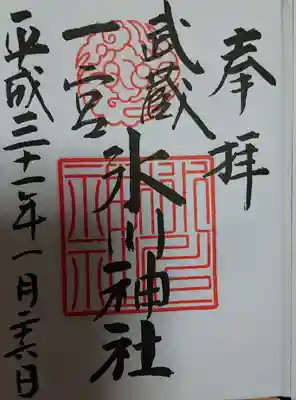 奉拝
武蔵
一宮
氷川神社
平成三十一年一月二六日